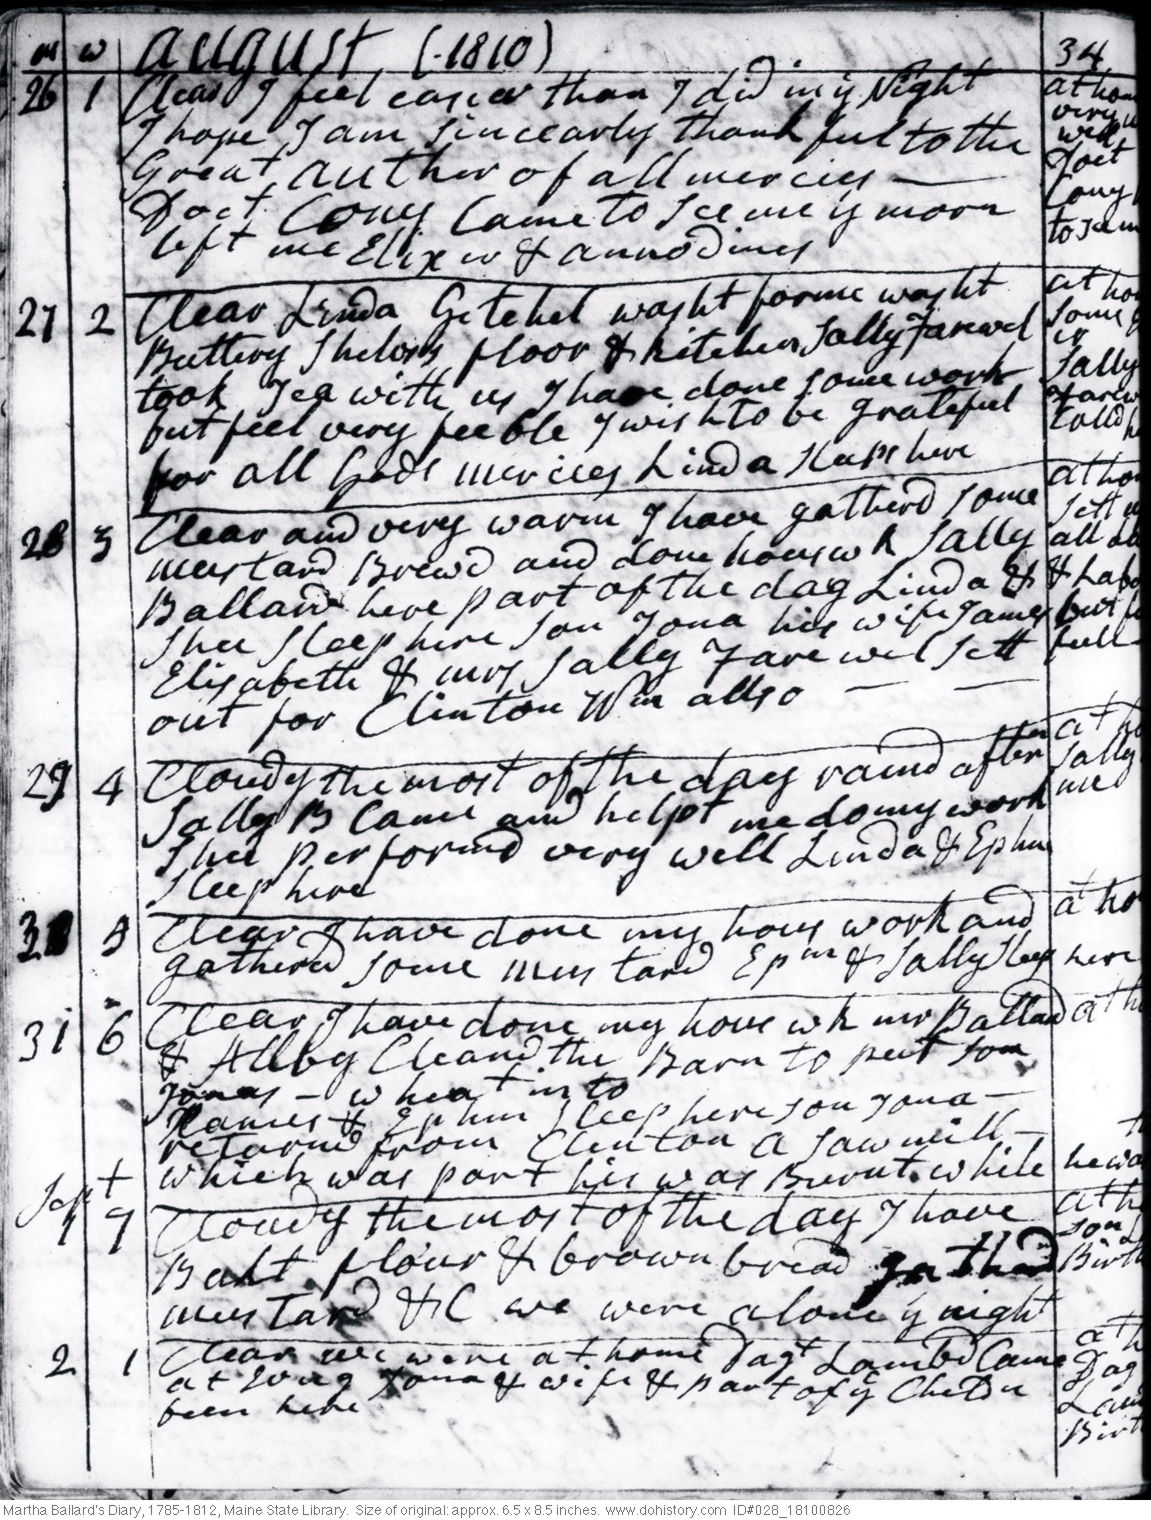 m w August (1810) 34
26 1 Clear I feel easier than I did in ye Night
I hope I am sincearly thankful to the
Great Author of all mercies —
Doct Cony Came to see me ye morn
left me Elixer & annodines
at hom
very
well
Doct
Cony
to see m
27 2 Clear Linda Getchel washt for me washt
Buttery Shelvs floor & kitchen Sally Farewel
took Tea with us I have done some work
but feel very feeble I wish to be grateful
for all Gods mercies Linda Sleeps here
at ho
Some
Sally
Farew
Calld he
28 3 Clear and very warm I have gatherd some
mustard Brewd and done houswk Sally
Ballard here part of the day Linda &
Shee Sleep here Son Jona his wife James
Elisabeth & mrs Sally Farewel Sett
out for Clinton Wm allso — —
at ho
Sett
all
& Labo
but f
full
29 4 Cloudy the most of the day raind after n
Sally B Came and helpt me do my work
Shee performd very well Linda & Ephm
Sleep here
at h
Sally
me
30 5 Clear I have done my hous work and
gatherd some mustard Epm & Sally Sleep here
at ho
31 6 Clear I have done my hous wk mr Ballard at h
& Allby Cleand the Barn to put son
Jonas — wheat in to
James & Ephm Sleep here son Jona —
returnd from Clinton a saw mill —
which was part his was Burnt while he wa
Sept
1 7 Cloudy the most of the day I have
Bakt flour & brown bread gatherd
mustard &C we were alone ye night
at h
son
Birth
2 1 Clear we were at home Dagt Lambd Came
at Evng Jona & wife & part of ye Childn
been here
at h
Dag
Lam
Birth
Martha Ballard's Diary, 1785-1812, Maine State Library. Size of original: approx. 6.5 x 8.5 inches. www.dohistory.com ID#028_18100826